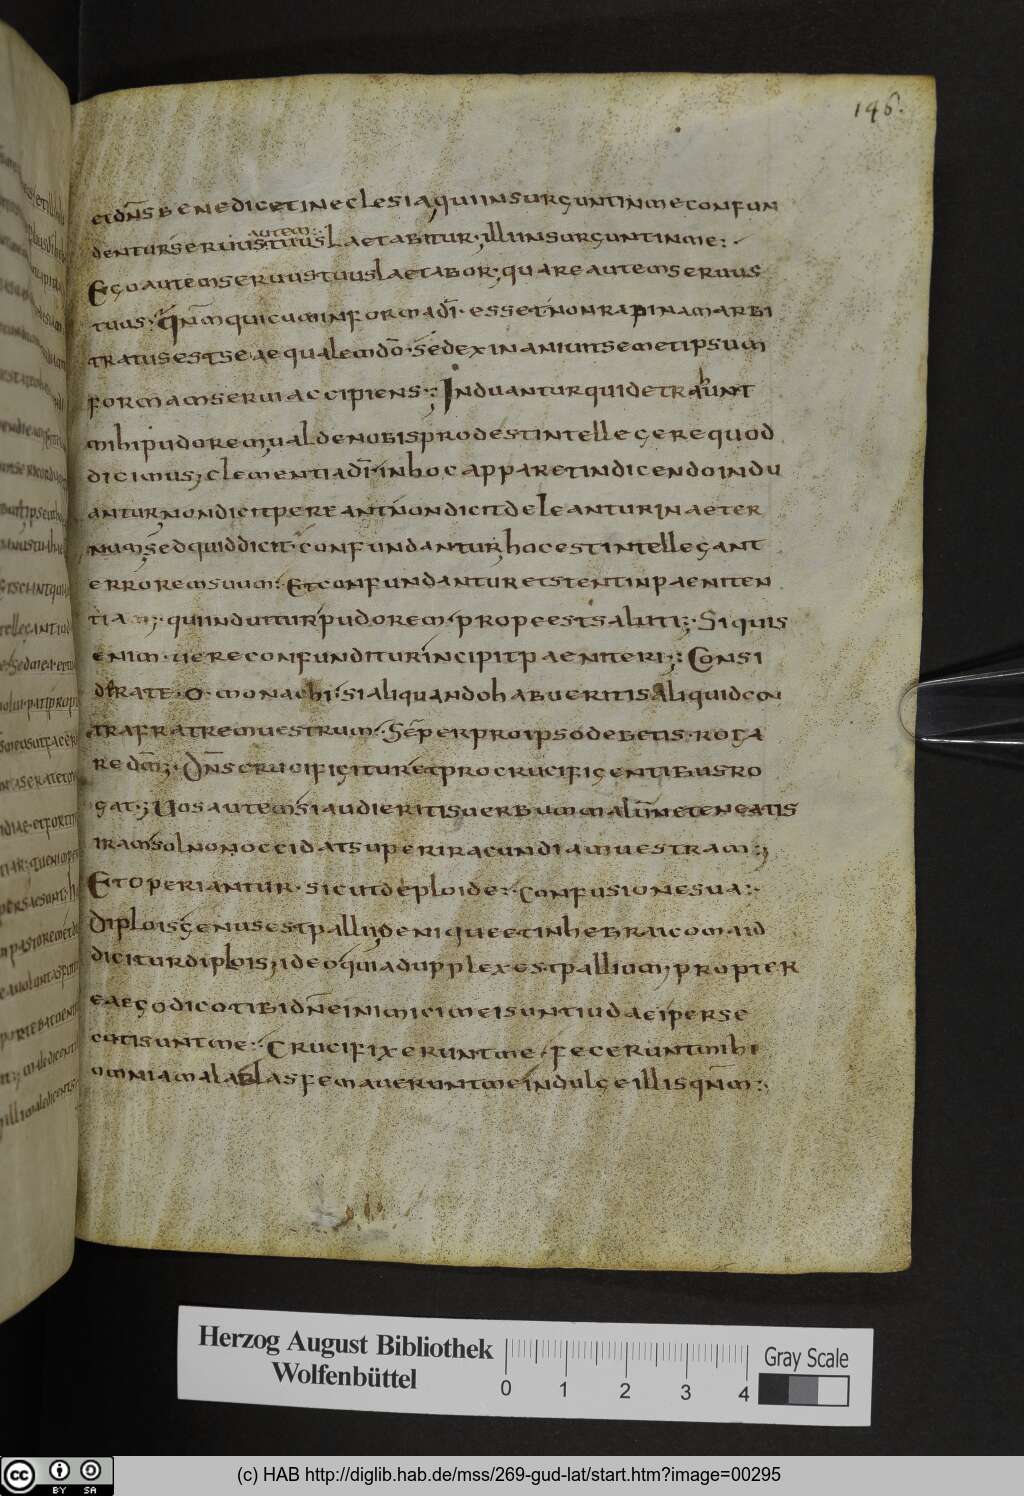 146.
et dn̄s benedicet in eclesia qui insurguntinme confun
dentur seruus tuus laetabitur · illi insurguntinme:
autem
Ego autem seruus tuus laetabor; quare autem seruus
tuus · qn̄m qui cum in forma dī · esset non rapinam arbi
tratus est se aequalem dō · sed exinaniuit semetipsum
formam serui accipiens; Induantur qui detrahunt
mihi pudorem ualde nobis prodest intellegere quod
dicimus; clementia dī in hoc apparet indicendo indu
antur non dicit pereant non dicit deleantur in aeter
num sed quid dicit · confundantur hoc est intellegant
errorem suum: Et confundantur et stent in paeniten
tia; qui induitur pudorem prope est saluti; Si quis
enim uere confunditur incipit paeniteri; Consi
derate · o · monachi · si aliquando habueritis aliquid con
tra fratrem uestrum · Sēper pro ipso debetis · roga
re dm̄; Dn̄s crucifigitur et pro crucifigentibus ro
gat; Uos autem si audieritis uerbum malum̄ retengatis
iram sol non occidat super iracundiam uestram;
Et operiantur · sicut deploide · confusione sua:
Diplois genus est pallii; denique et in hebraico maid
dicitur diplois; ideo quia dupplex est pallium; propter
ea ego dico tibi dn̄e inimici mei sunt iudaei perse
cuti sunt me: Crucifixerunt me fecerunt mihi
omnia mala blasfemauerunt me indulge illis qn̄m:
Herzog August Bibliothek
Wolfenbüttel
0 1 2 3 4
Gray Scale
cc BY SA
(c) HAB http://diglib.hab.de/mss/269-gud-lat/start.htm?image=00295